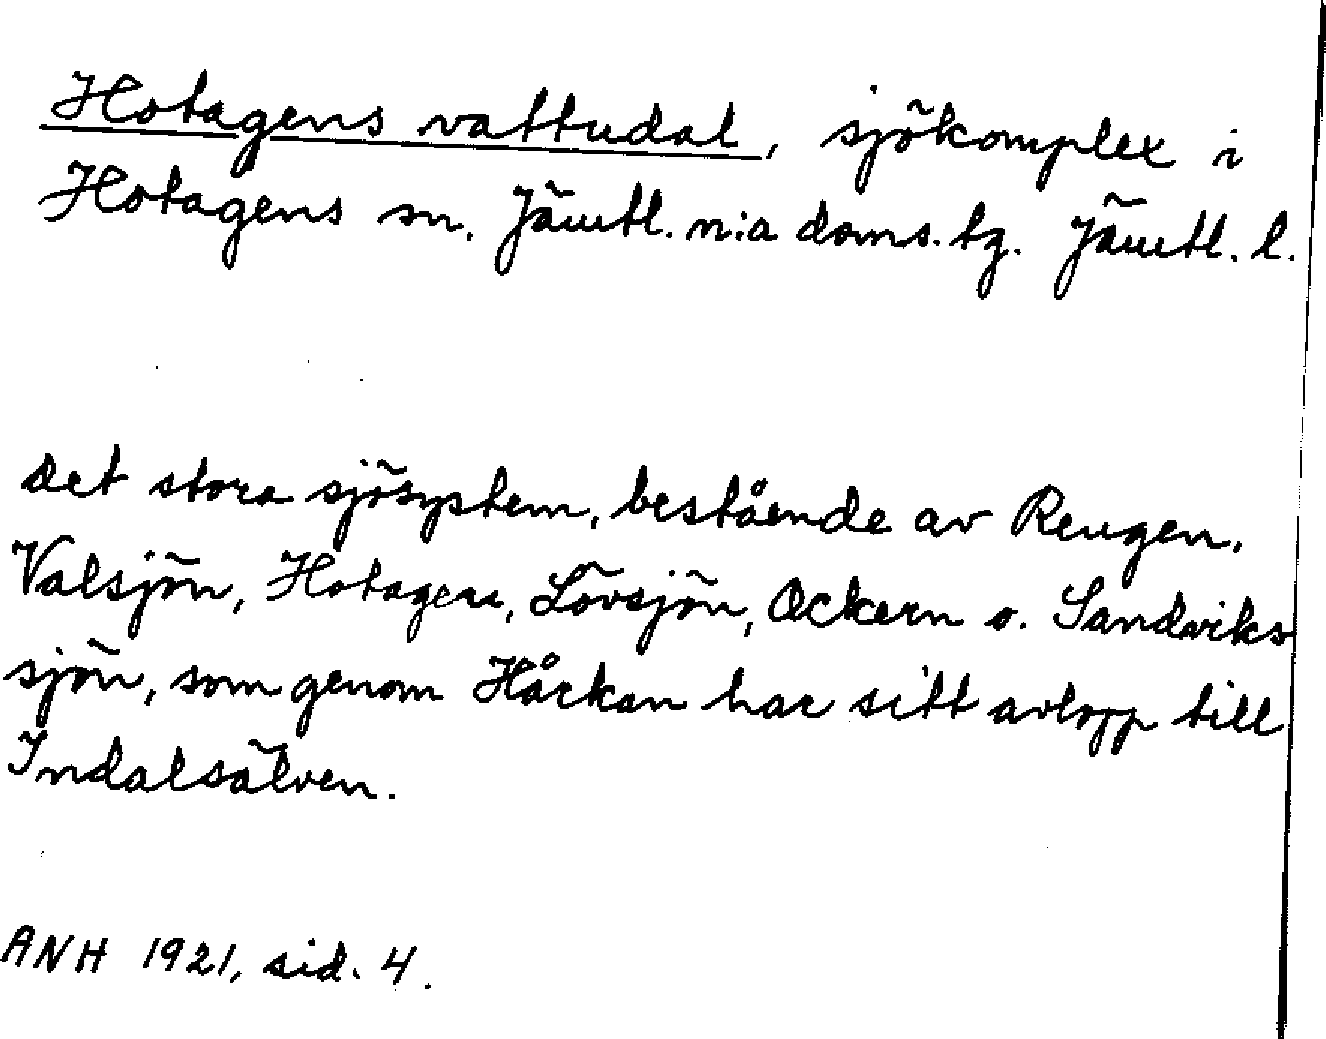 Hotagens vattudal, sjökomplex i
Hotagens sn. Jämtl. n:a doms. tg. Jämtl. l.
det stora sjösystem, bestående av Rengen,
Valsjön, Hotagen, Lövsjön, Ockern o. Sandviks
sjön, som genom Hårkan har sitt avlopp till
Indalsälven.
ANH 1921, sid. 4.